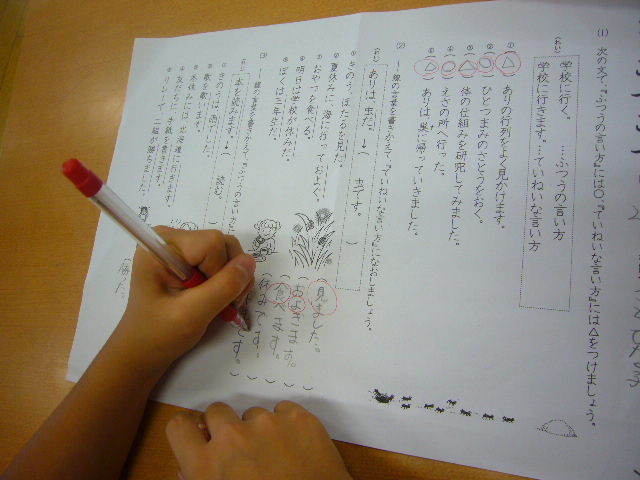 (1) 次の文で、『ふつうの言い方』には〇、『ていねいな言い方』には△をつけましょう。
(れい) 学校に行く。 …ふつうの言い方
学校に行きます。…ていねいな言い方
① △ ありの行列をよく見かけます。
② 〇 ひとつまみのさとうをおく。
③ △ 体の仕組みを研究してみました。
④ 〇 えさの所へ行った。
⑤ △ ありは巣に帰っていきました。
(2) ―線の言葉を書きかえて、『ていねいな言い方』になおしましょう。
(れい) ありは、虫だ。→( 虫です。 )
① きのう、ほたるを見た。 (見ました。)
② 夏休みに、海に行っておよぐ。 (およぎます。)
③ おやつを食べる。 (食べます。)
④ 明日は学校が休みだ。 (休みです。)
⑤ ぼくは三年生だ。 です。)
(3) ―線の言葉を書きかえて、『ふつうの言い方』
(れい) 本を読みます。→( 読む。
① きのうは、雨でした。
② 歌を歌います。
③ 冬休みには、北海道に行きます。
④ 友だちに、手紙を書きます。
⑤ リレーで、二組が勝ちました。 (勝った。